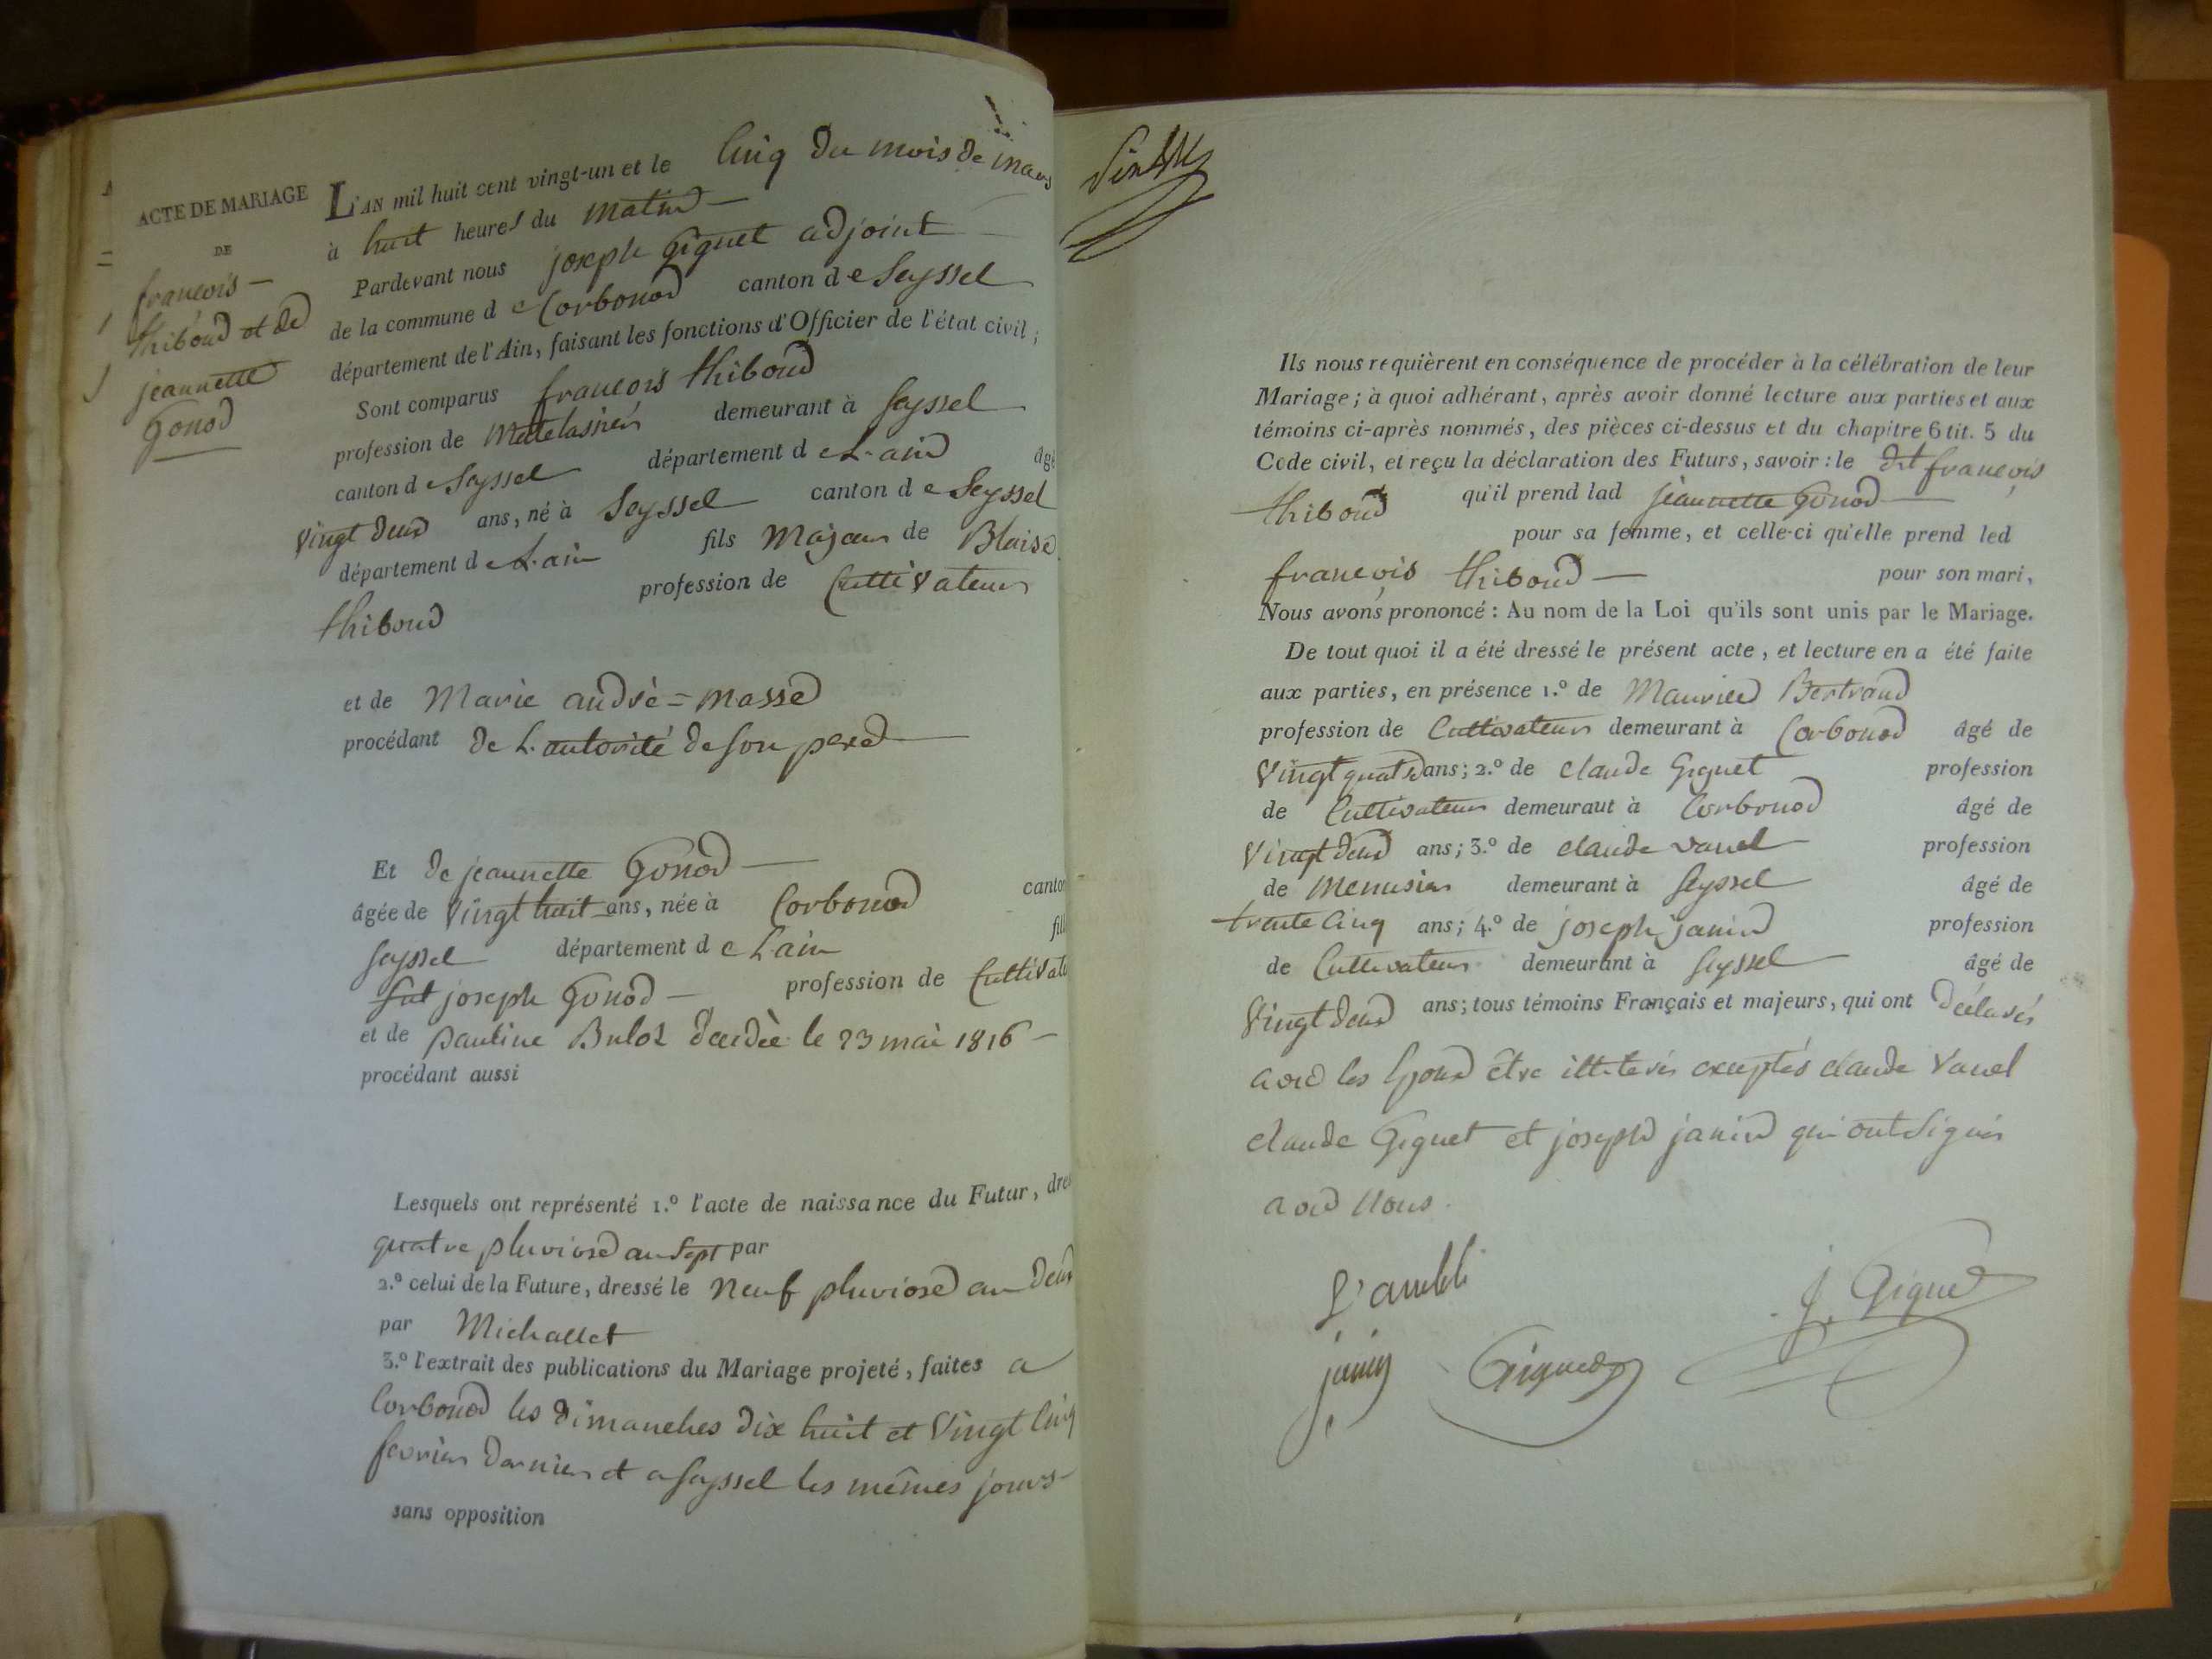 ACTE DE MARIAGE
DE
francois
thiboud et de
jeannette
Gonod
L'AN mil huit cent vingt-un et le Cinq du mois de mars
à huit heures du matin
Pardevant nous joseph Giguet adjoint
de la commune de Corbonod canton de Seyssel
département de l'Ain, faisant les fonctions d'Officier de l'état civil ;
Sont comparus francois thiboud
profession de Matelassier demeurant à Seyssel
canton de Seyssel département de L'ain âgé
vingt deux ans, né à Seyssel canton de Seyssel
département de L'ain fils Majeur de Blaise
thiboud profession de Cultivateur
et de Marie andrè = masse
procédant de L'autorité de son pere
Et de jeannette Gonod
âgée de Vingt huit ans, née à Corbonod canton
Seyssel département de L'ain
fut joseph Gonod profession de Cultivat
et de pauline Bulot décédèe le 23 mai 1816
procédant aussi
Lesquels ont représenté 1.º l'acte de naissance du Futur, dres
quatre pluviose an sept par
2.º celui de la Future, dressé le Neuf pluviose an deux
par Michallet
3.º l'extrait des publications du Mariage projeté, faites a
Corbonod les dimanches dix huit et Vingt Cinq
fevrier dernier et a Seyssel les mêmes jours
sans opposition
Ils nous requièrent en conséquence de procéder à la célébration de leur
Mariage ; à quoi adhérant, après avoir donné lecture aux parties et aux
témoins ci-après nommés, des pièces ci-dessus et du chapitre 6 tit. 5 du
Code civil, et reçu la déclaration des Futurs, savoir : le dit françois
thiboud qu'il prend lad jeannette Gonod
pour sa femme, et celle-ci qu'elle prend led
francois thiboud pour son mari,
Nous avons prononcé : Au nom de la Loi qu'ils sont unis par le Mariage.
De tout quoi il a été dressé le présent acte, et lecture en a été faite
aux parties, en présence 1.º de Maurice Bertrand
profession de Cultivateur demeurant à Corbonod âgé de
Vingt quatre ans ; 2.º de claude Giguet profession
de Cultivateur demeuraut à Corbonod âgé de
Vingt deux ans ; 3.º de claude vanel profession
de Menusier demeurant à Seyssel âgé de
trente Cinq ans ; 4.º de joseph janin profession
de Cultivateur demeurant à Seyssel âgé de
Vingt deux ans ; tous témoins Français et majeurs, qui ont déclarés
avec les Epoux être illiterés exceptés claude Vanel
claude Giguet et joseph janin qui ont signés
avec Nous.
J. Giguet
janin Giguet